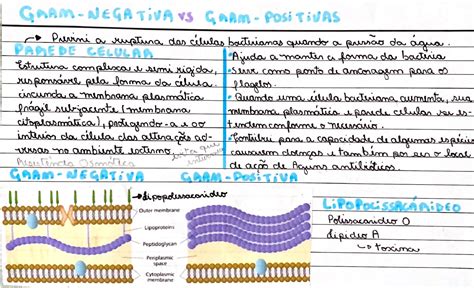 GRAM-NEGATIVA VS GRAM-POSITIVAS
→ Previni a ruptura das células bacterianas quando a pressão da água.
PAREDE CELULAR
Estrutura complexa e semi rígida,
responsável pela forma da célula.
circunda a membrana plasmática
frágil subjacente (membrana
citoplasmática), protegendo-a e ao
interior da célula das alterações ad-
versas no ambiente externo.
Resistência Osmótica
• Ajuda a manter a forma da bactéria
• Serve como ponto de ancoragem para o
flagelos.
• Quando uma célula bacteriana aumenta, sua
membrana plasmática e parede celular se es-
tendem conforme o necessário.
• Contribui para a capacidade de algumas espécies
causarem doenças e também por ser o local
de ação de alguns antibióticos.
GRAM-NEGATIVA
GRAM-POSITIVA
→ Lipopolissacarídeo
Outer membrane
Lipoproteins
Peptidoglycan
Periplasmic space
Cytoplasmic membrane
LIPOPOLISSACARÍDEO
Polissacarídeo O
Lipídeo A
→ toxina